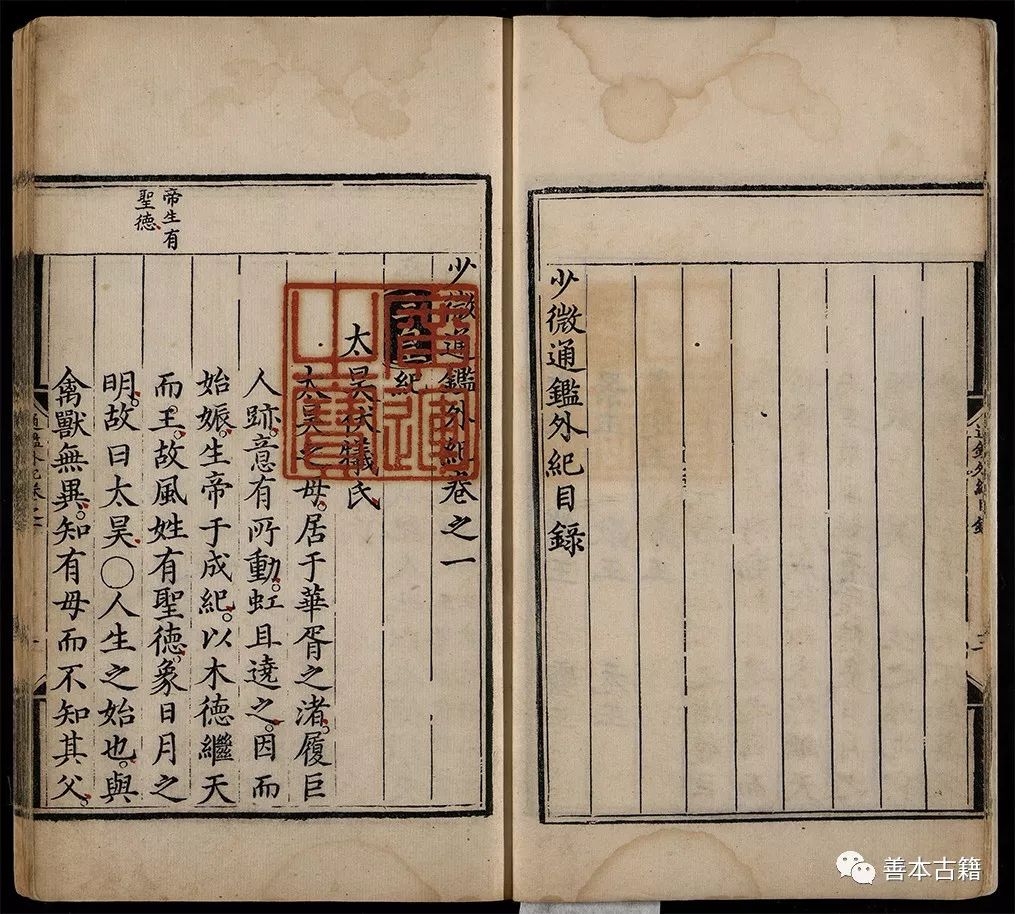 少微通鑑外紀目錄
通鑑外紀目錄
少微通鑑外紀卷之一
紀
太昊伏犧氏
太昊之母。居于華胥之渚。履巨
人跡。意有所動。虹且遶之。因而
始娠。生帝于成紀。以木德繼天
而王。故風姓有聖德。象日月之
明。故曰太昊○人生之始也。與
禽獸無異。知有母而不知其父。
帝生有
聖德
廣運
之寶
善本古籍